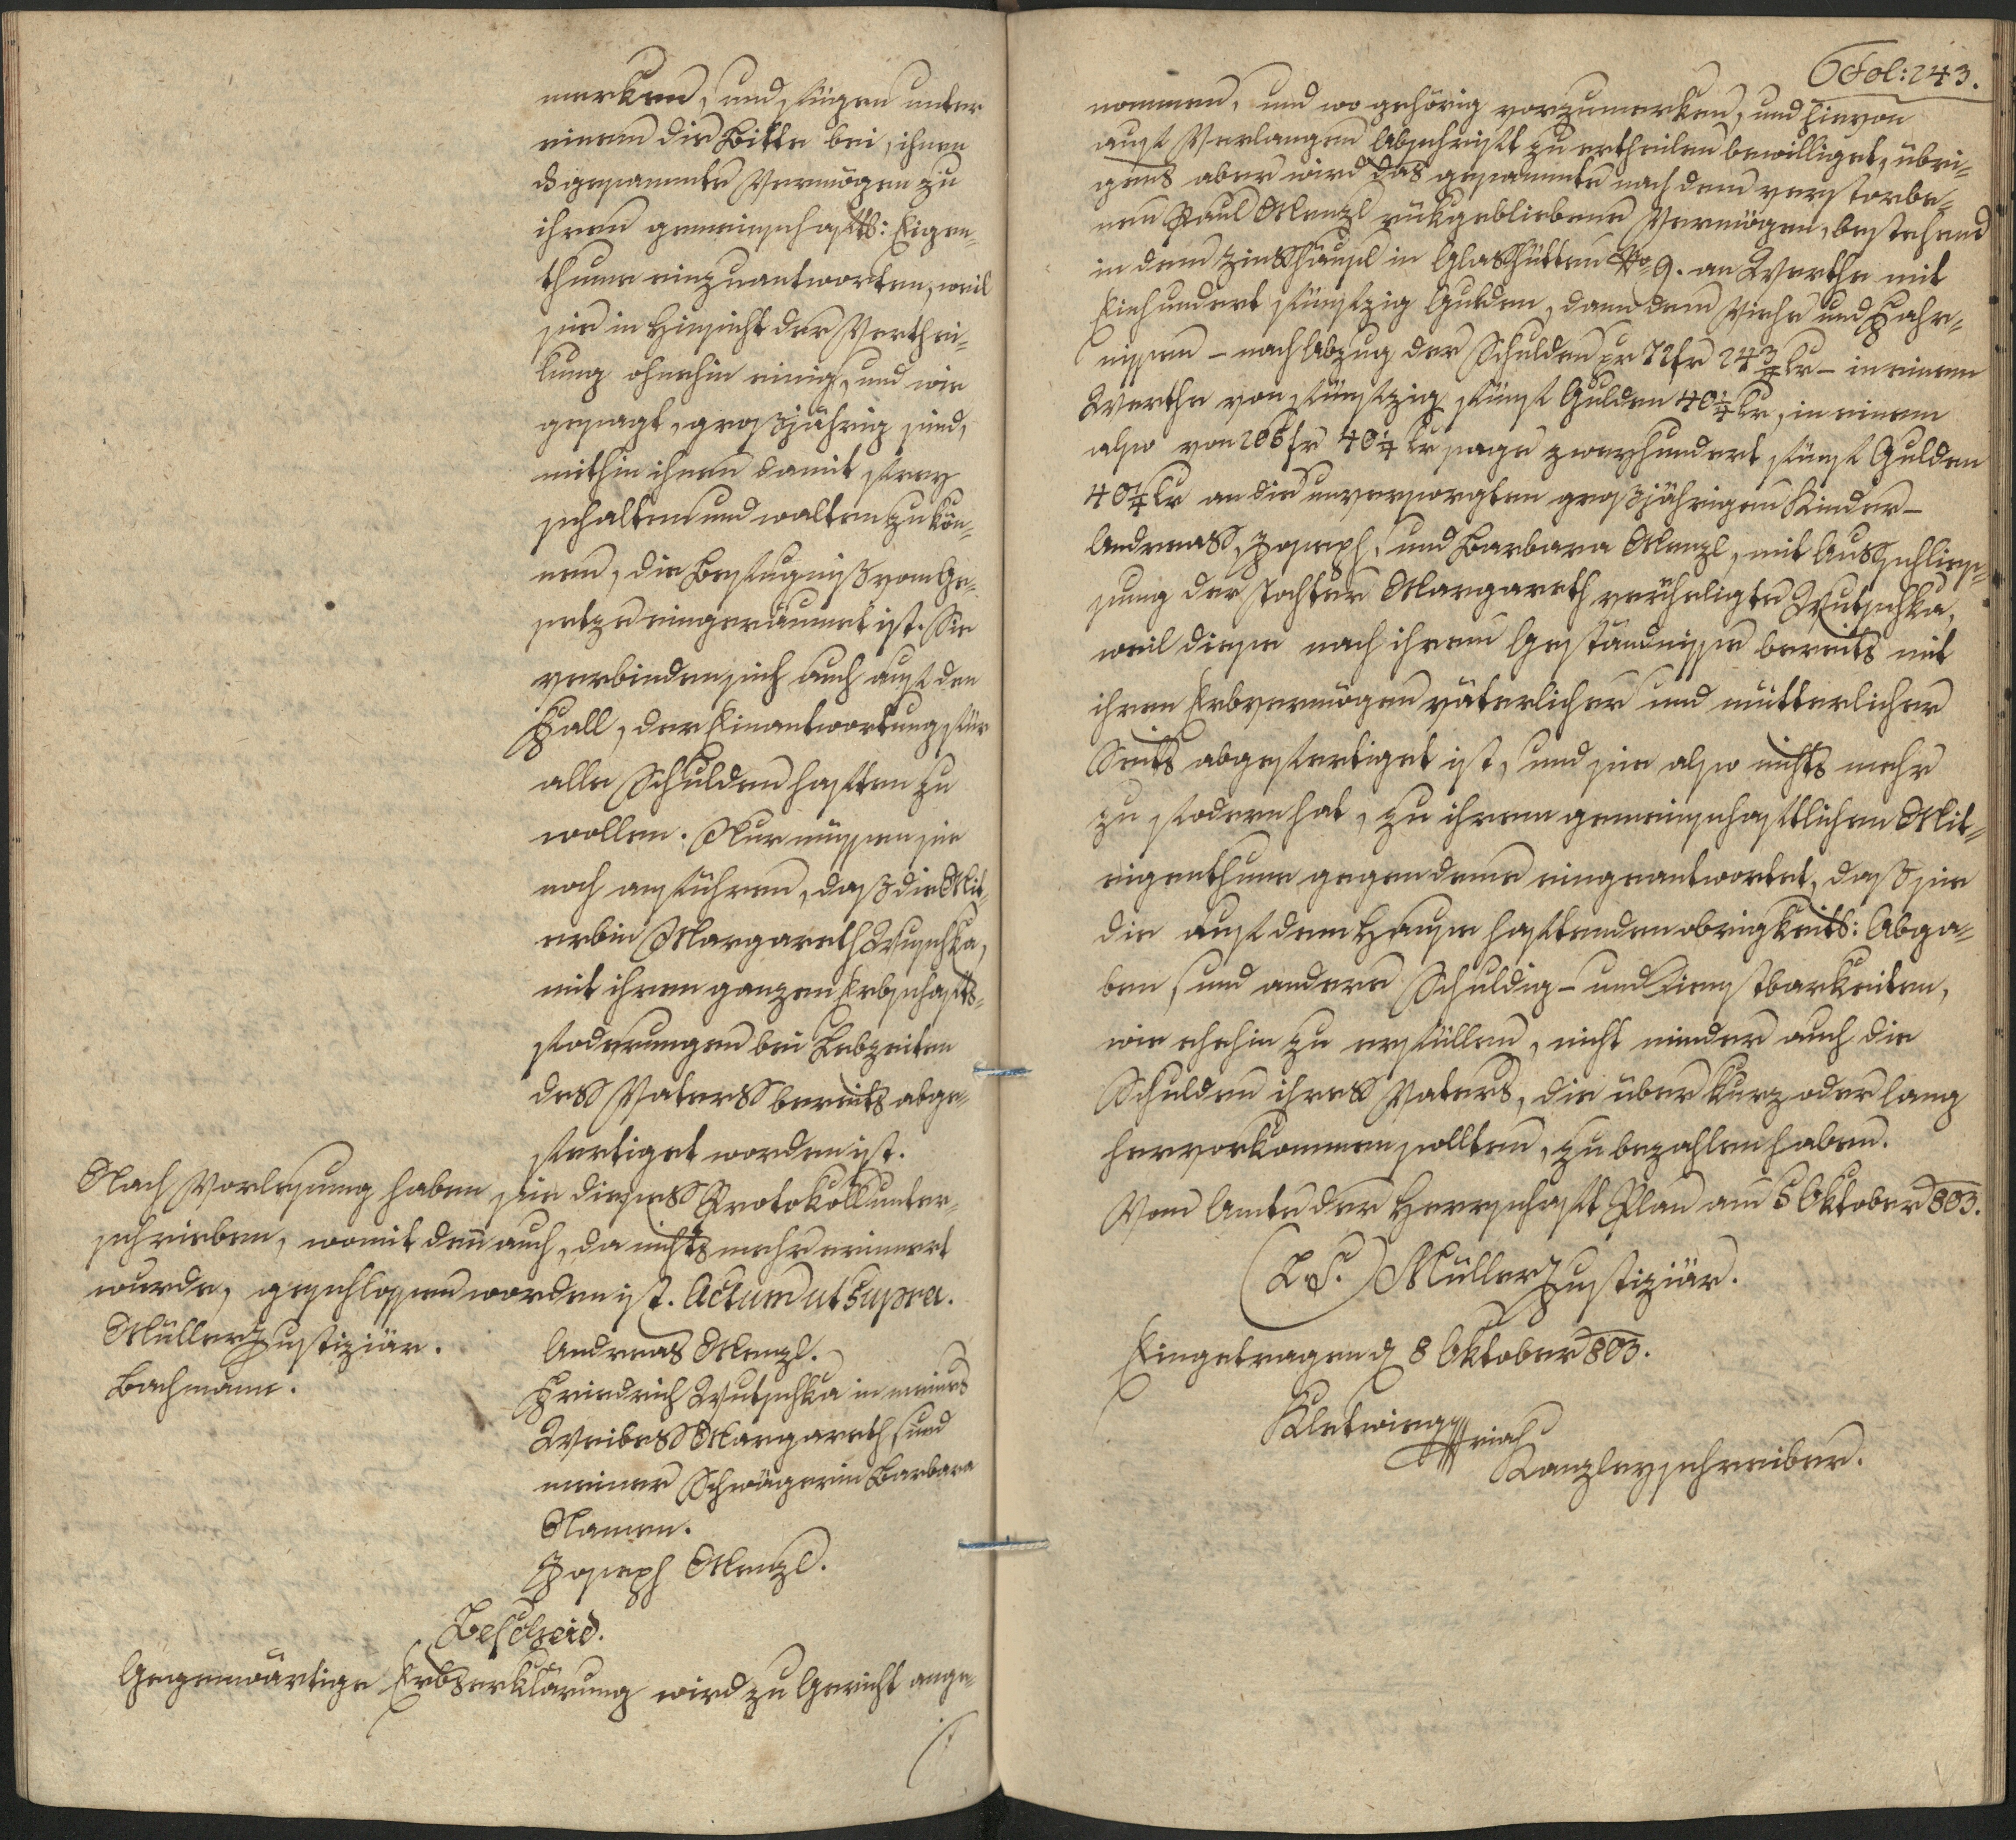 merken, und fügen unter
einem die Bitte bei, ihnen
ds gesammte Vermögen zu
ihren gemeinschafts: Eigen-
thume einzuantworten, weil
sie in Hinsicht der Verthei-
lung ohnehin einig, und wie
gesagt, großjährig sind,
mithin ihnen damit frey
schalten und walten zu kön-
nen, die Befugniß vom Ge-
setze eingeräumet ist. Sie
verbinden sich auch auf den
Fall, der Einantwortung für
alle Schulden haften zu
wollen. Nur müssen sie
noch anführen, daß die Mit-
erbin Margareth Wuschka,
mit ihren ganzen Erbschafts-
foderungen bei Lebzeiten
dess Vaterss bereits abge-
fertiget worden ist.
Nach Vorlesung haben sie diesess Protokoll unter-
schrieben, womit deñ auch, da nichts mehr erinnert
wurde, geschlossen worden ist. Actum ut supra.
Müller Justiziär.
Bachmann.
Andreas Menzl.
Friedrich Wutschka in meines
Weibess Margareth, und
meiner Schwägerin Barbara
Namen.
Joseph Menzl.
Bescheid.
Gegenwärtige Erbserklärung wird zu Gericht ange-
Fol: 243.
nommen, und wo gehörig vorzumerken, und hievon
auf Verlangen Abschrift zu ertheilen bewilliget, übri-
gens aber wird das gesammte nach dem verstorbe-
nen Paul Menzl rükgebliebene Vermögen, bestehend
in dem Zinsshäusl in Glasshütten Nro 9. an Werthe mit
Einhundert fünfzig Gulden, dann dem Viehe und Fahr-
nissen - nach Abzug der Schulden pr 72 fr 24 3/4 kr - in einem
Werthe von fünfzig fünf Gulden 40 1/4 kr, in einem
also von 205 fr 40 1/4 kr sage zweyhundert fünf Gulden
40 1/4 kr an die unversorgten großjährigen Kinder -
Andreass, Joseph, und Barbara Menzl, mit Ausschlies-
sung der Tochter Margareth verehligte Wutschka,
weil diese nach ihrem Geständnisse bereits mit
ihren Erbvermögen väterlicher und mütterlicher
Seits abgefertiget ist, und sie also nichts mehr
zu fodern hat, zu ihrem gemeinschaftlichen Mit-
eigenthume gegen deme eingeantwortet, daß sie
die auf dem Hause haftenden obrigkeits: Abga-
ben, und andere Schuldig- und Dienstbarkeiten,
wie ehehin zu erfüllen, nicht minder auch die
Schulden ihress Vaters, die über kurz oder lang
hervorkommen sollten, zu bezahlen haben.
Vom Amte der Herrschaft Plan am 5 Oktober 803.
(L. S.) Müller Justiziär.
Eingetragen d 8 Oktober 803.
Kanzleyschreiber.